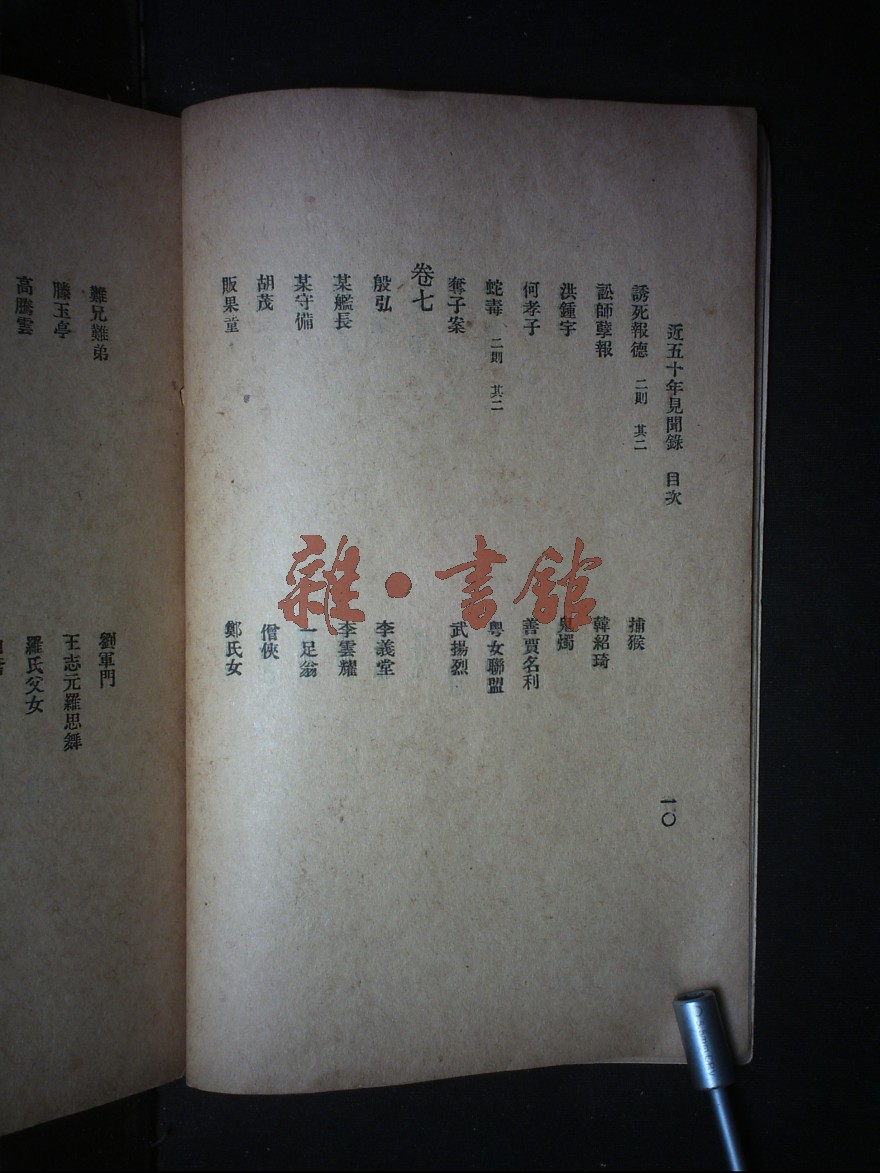 近五十年見聞錄 目次 一〇
誘死報德 二則 其二 捕猴
訟師孽報 韓紹琦
洪鍾宇 鬼燭
何孝子 善賈名利
蛇毒 二則 其二 粵女聯盟
奪子案 武揚烈
卷七
殷弘 李義堂
某艦長 李雲耀
某守備 一足翁
胡茂 僧俠
販果童 鄭氏女
難兄難弟 劉軍門
滕玉亭 王志元羅思舉
高騰雲 羅氏父女
雜·書館